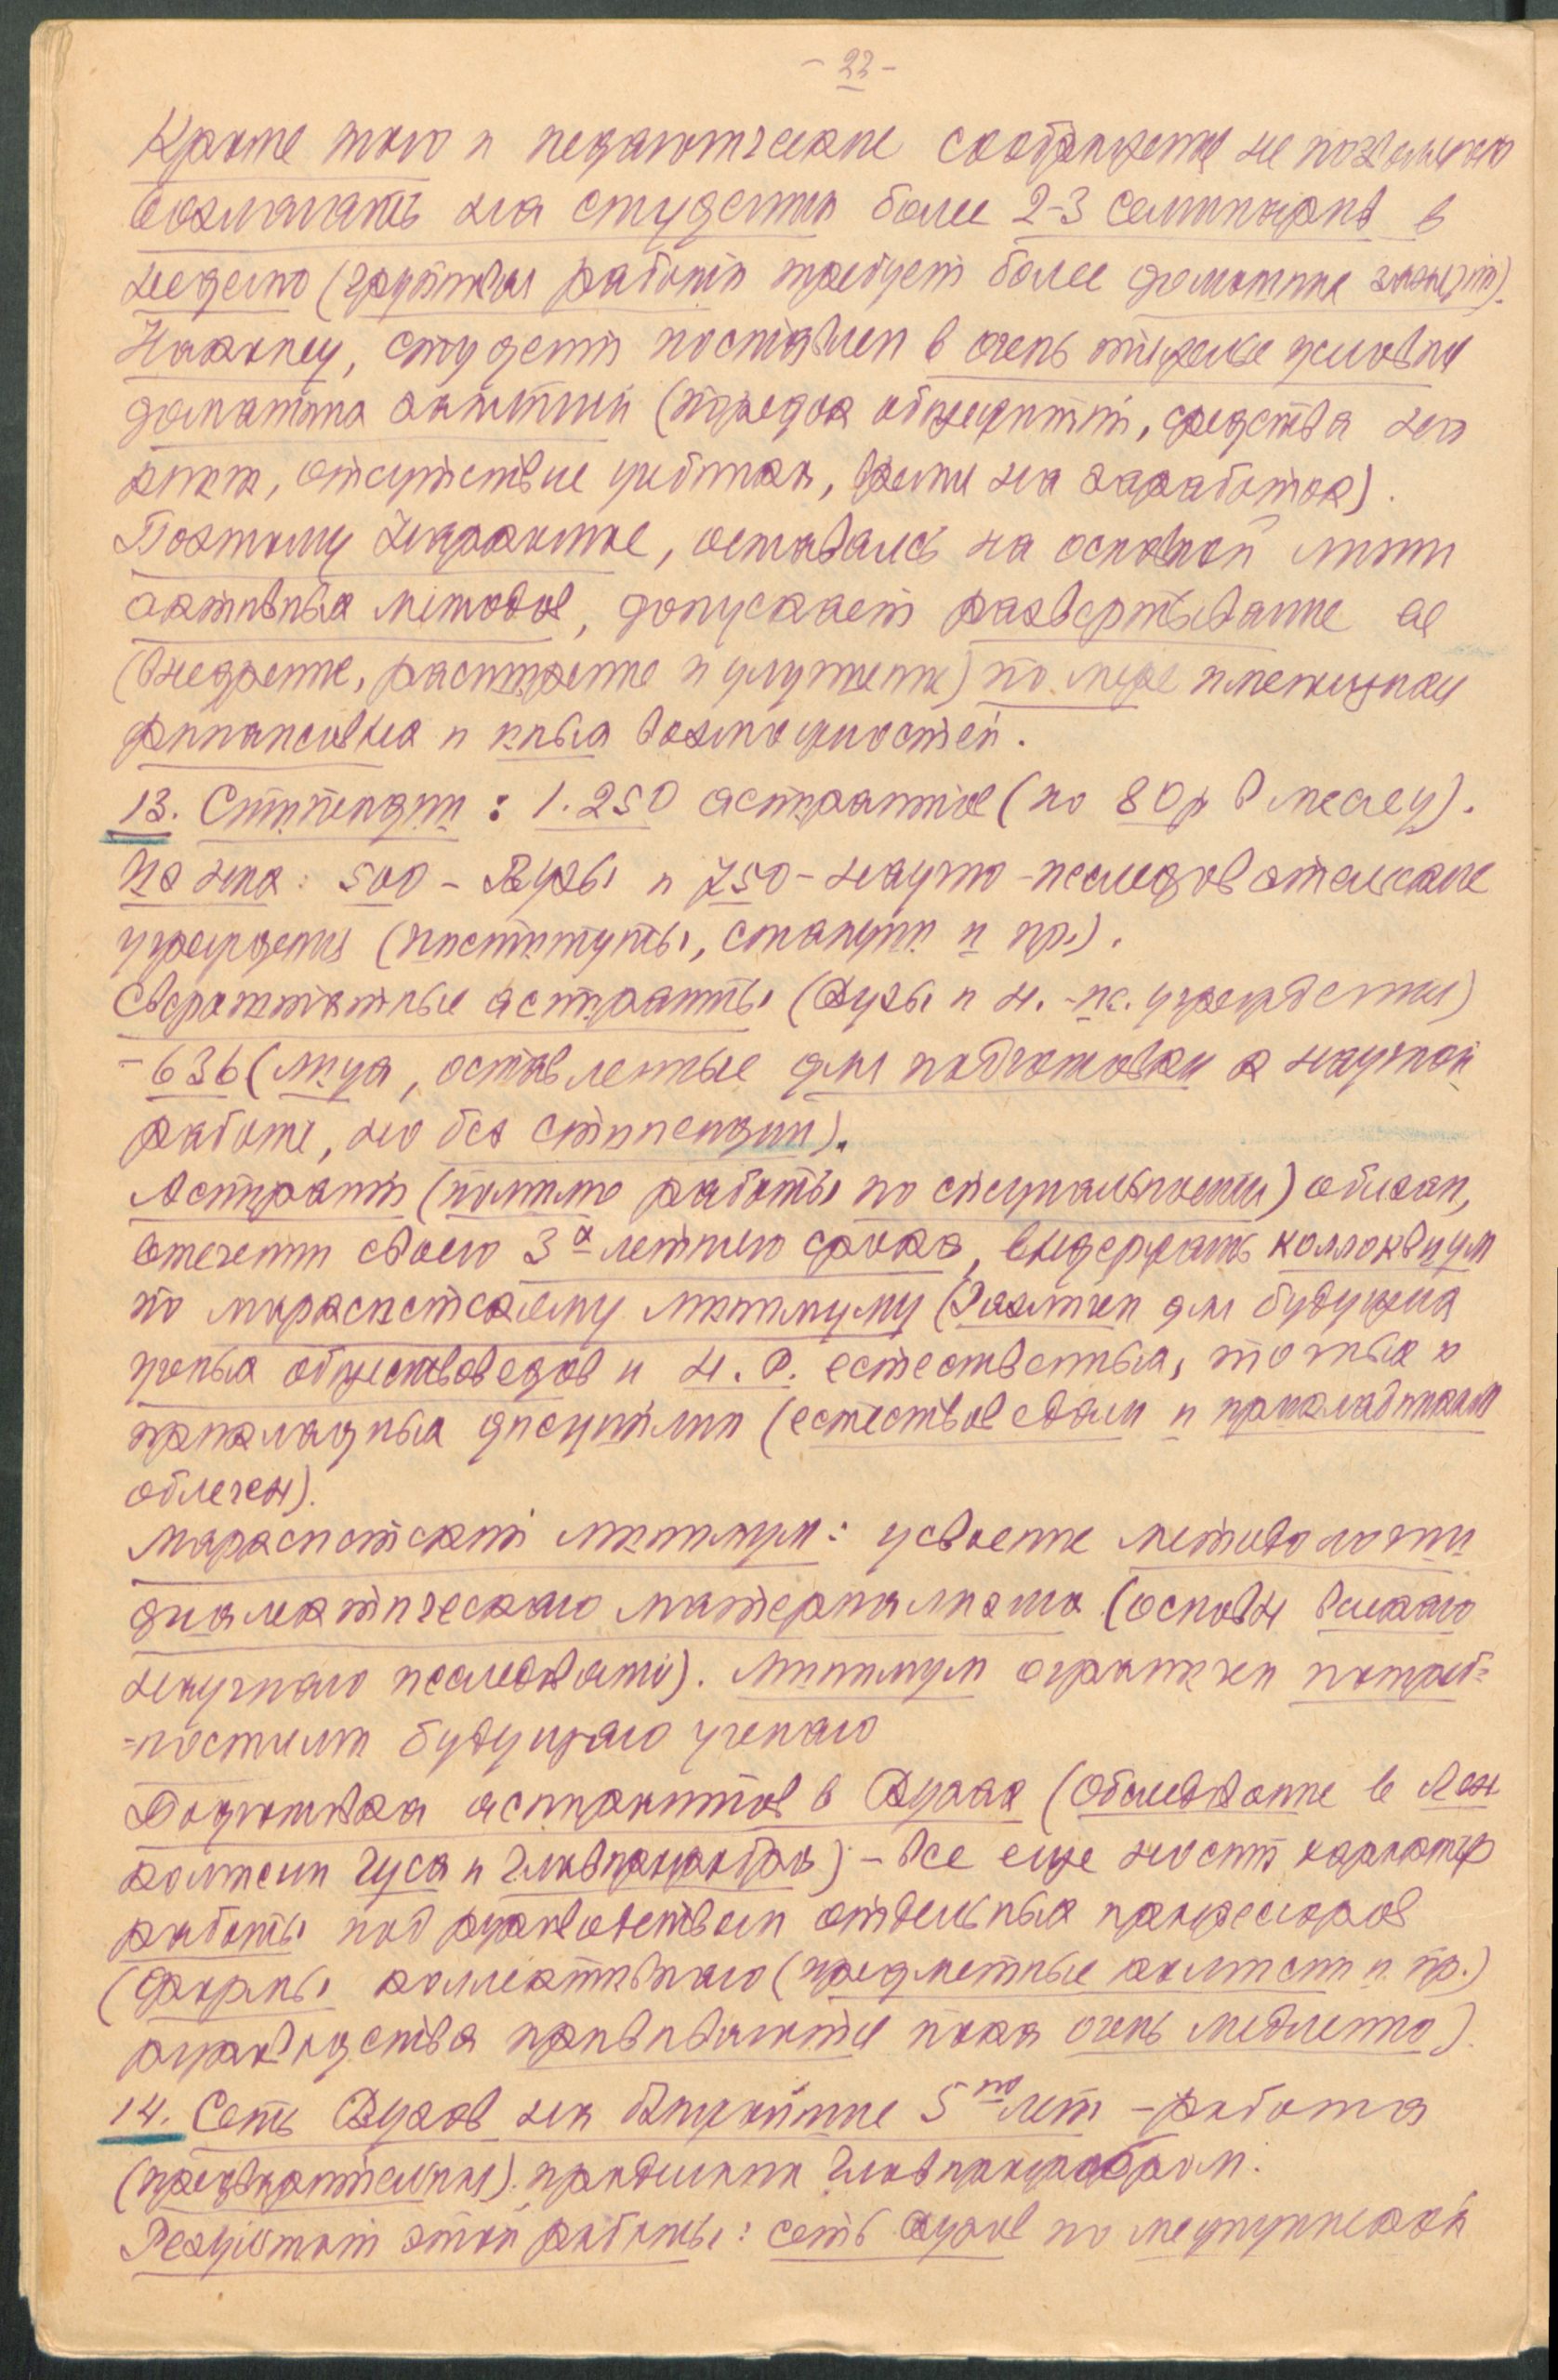 - 23 -
Кроме того и педагогические соображения не позволяют
возлагать на студента более 2-3 семинаров в
неделю (групповая работа требует более домашних занятий).
Наконец, студент поставлен в очень тяжелые условия
домашних занятий (порядок общежитий, средства на
книги, отсутствие учебника, время на заработок).
Поэтому Наркомпрос, оставаясь на основной линии
активных методов, допускает развертывание ее
(внедрение, расширение и улучшение) по мере имеющихся
финансовых и иных возможностей.
13. Стипендии: 1.250 аспирантов (по 80 р в месяц).
Из них: 500 - Вузы и 750 - научно-исследовательские
учреждения (институты, станции и пр.).
Сверхштатные аспиранты (Вузы и н.-ис. учреждения)
- 636 (лица, оставленные для подготовки к научной
работе, но без стипендии).
Аспирант (помимо работы по специальности) обязан,
в течении своего 3х летнего срока, выдержать коллоквиум
по марксистскому минимуму (различен для будущих
ученых обществоведов и н. р. естественных, точных и
прикладных дисциплин (естествоведам и прикладникам
облегчен).
Марксистский минимум: усвоение методологии
диалектического материализма (основы всякаго
научнаго исследования). Минимум ограничен потреб=
=ностями будущаго ученаго
Подготовка аспирантов в Вузах (обследование в Лен
комиссии Гуса и Главпрофобра) - все еще носит характер
работы под руководством отдельных профессоров
(формы коллективнаго (предметные комиссии и пр.)
руководства прививаются пока очень медленно).
14. Сеть Вузов на ближайшие 5ть лет - работа
(предварительная) проделана Главпрофобром.
Результат этой работы: сеть Вузов по медицинской